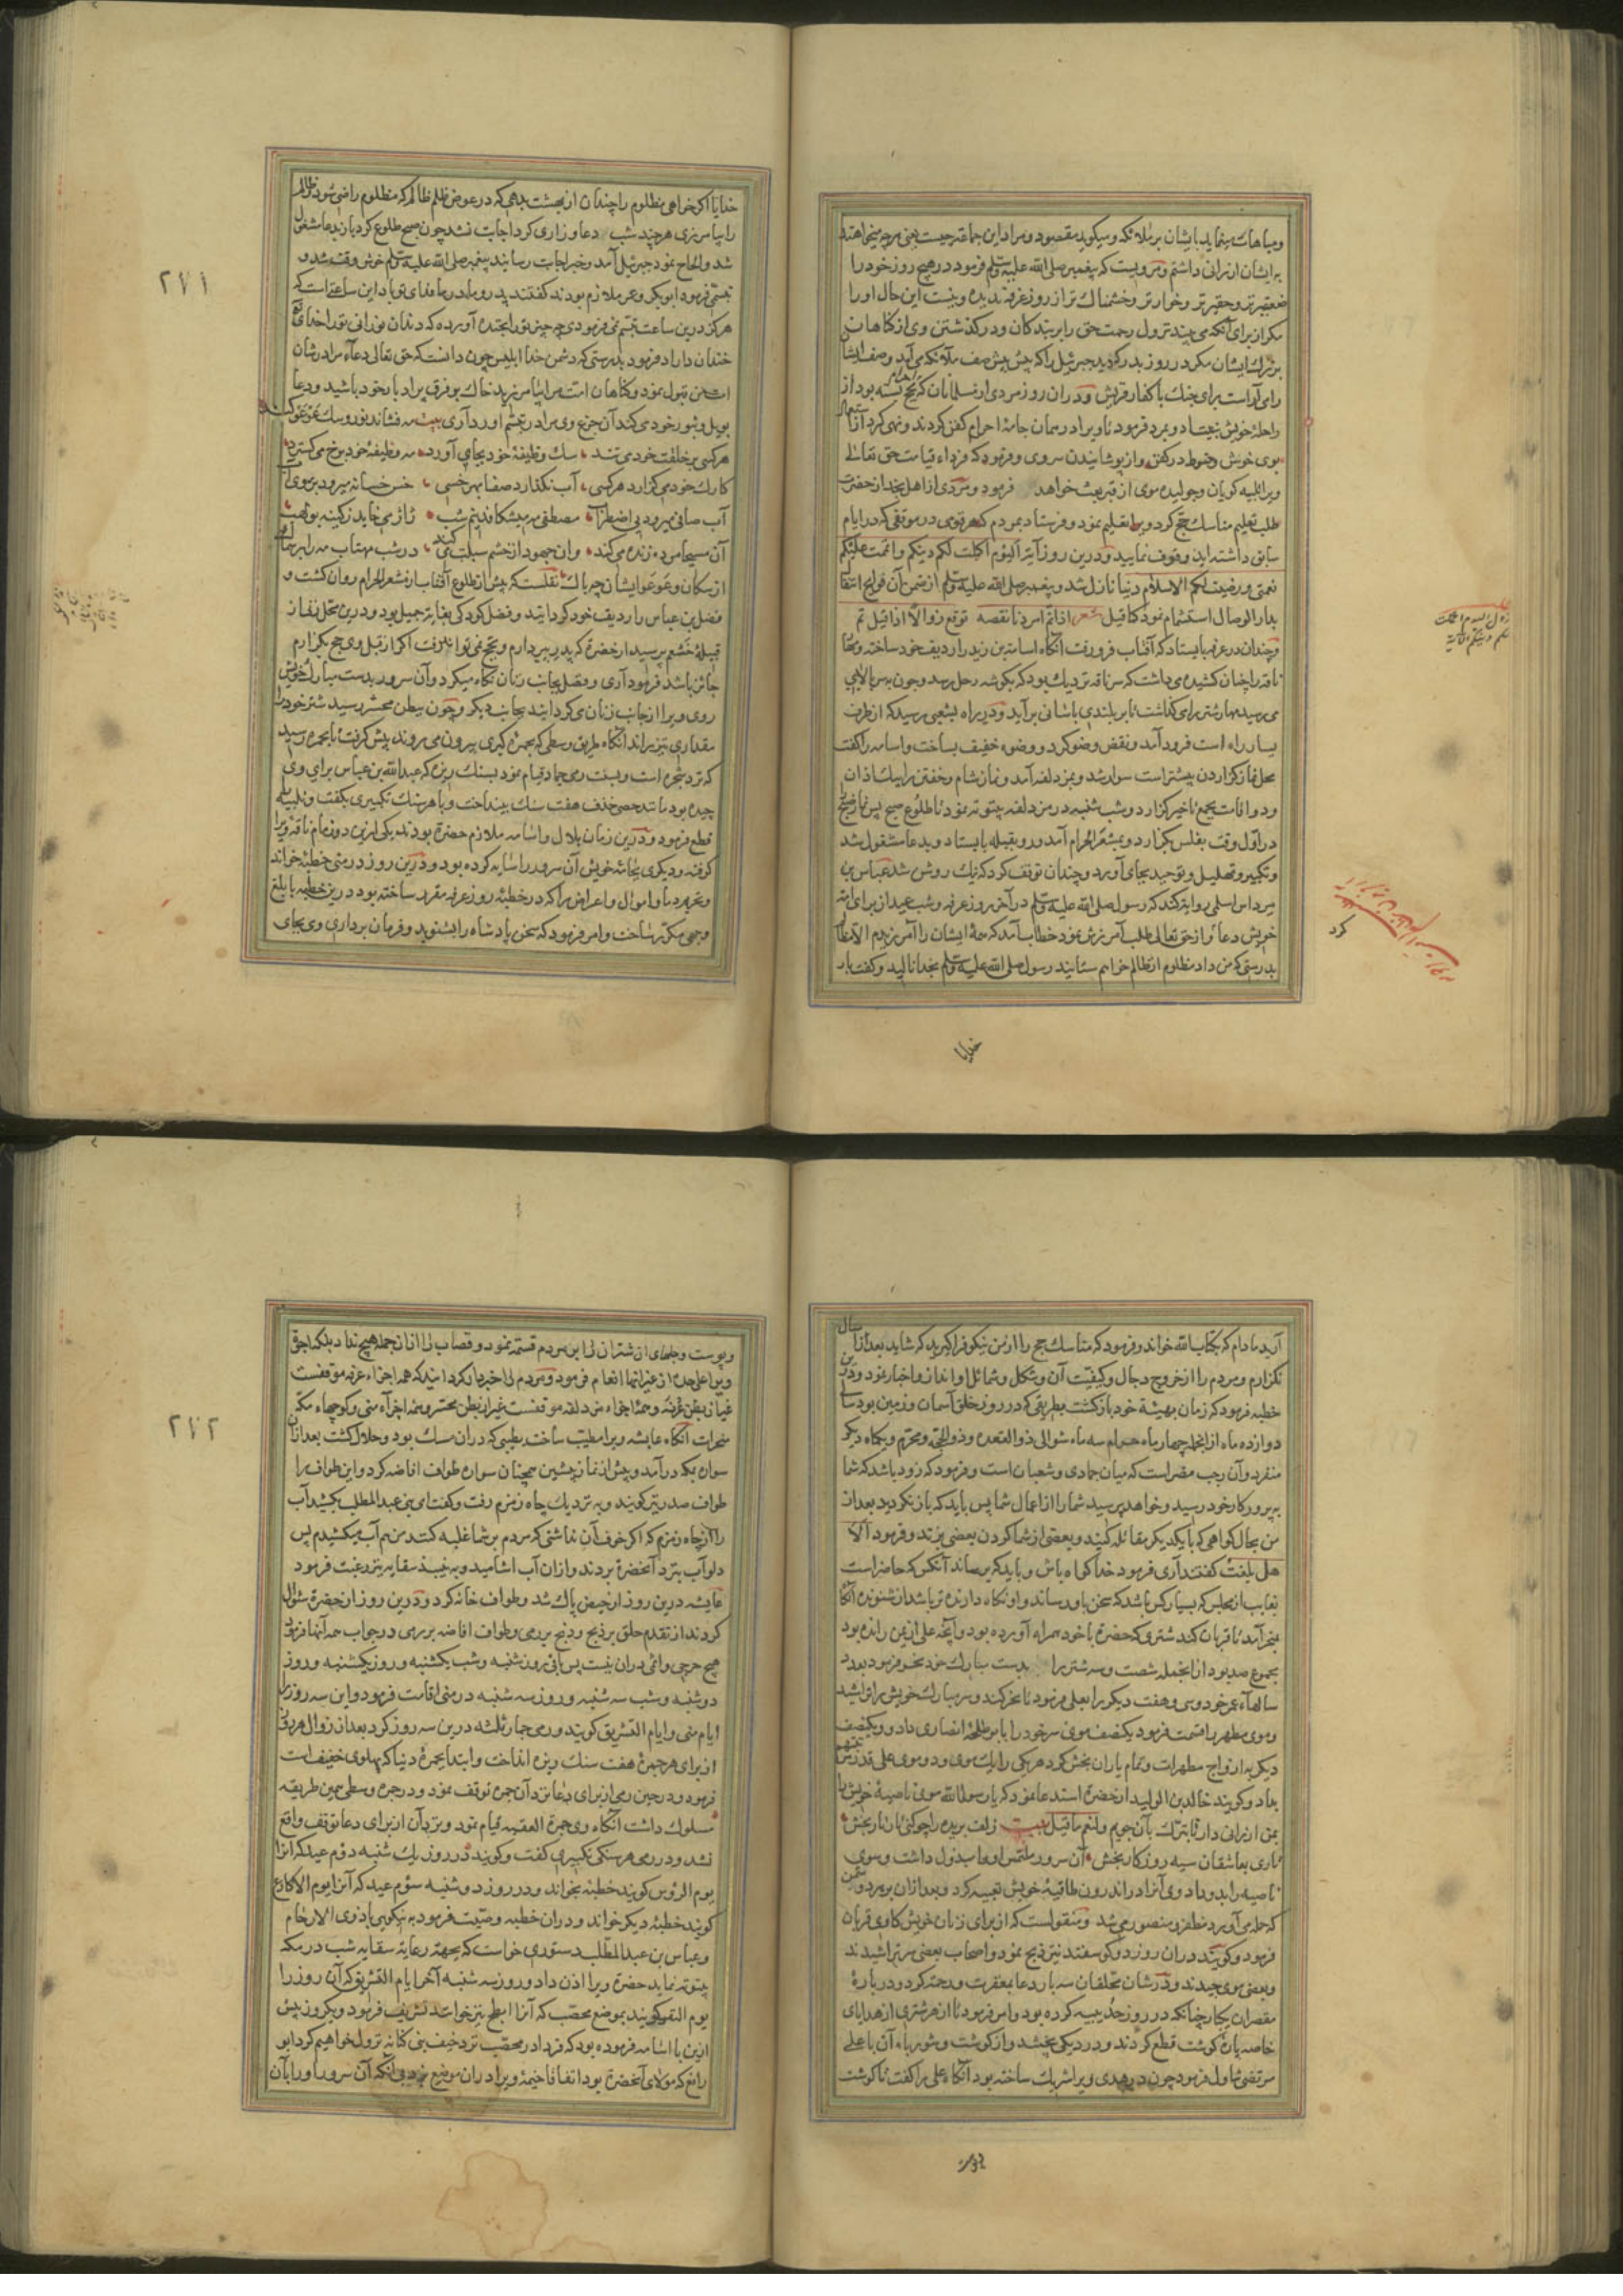 ومباهات مینماید بایشان بر ملائکه ومیکوید مقصود ومراد این جماعه چیست یعنی هرچه میخواهند
بایشان ارزانی داشتم ومرویست که پیغمبر صلی الله علیه وسلم فرمود در هیچ روز خود را
ضعیفتر وحقیرتر وخوارتر وخشمناکتر از روز عرفه ندیده ونیست این حال او را
مکر از برای آنکه می بیند نزول رحمت حق را بر بندکان ودر کذشتن وی از کناهان
بزرک ایشان مکر در روز بدر که دید جبرئیل را که پیش پیش صف ملائکه می آید وصف ایشان
را می آراست برای جنک با کفار قریش ودران روز مردی از مسلمانان که احرام حج بسته بود از
راحلهٔ خویش بیفتاد وبمرد فرمود تا ویرا در همان جامهٔ احرام کفن کردند ونهی کرد از استعمال
بوی خوش وحنوط در کفن واز پوشانیدن سر وی وفرمود که فردای قیامت حق تعالی
ویرا تلبیه کویان وجولیده موی از قبر بعث خواهد فرمود ومردی از اهل نجد از حضرت
طلب تعلیم مناسک حج کرد ویرا تعلیم نمود وفرستاد بمردم که هر قومی در موقفی که در ایام
سابق داشته اید وقوف نمایید ودرین روز آیة الیوم اکملت لکم دینکم واتممت علیکم
نعمتی ورضیت لکم الاسلام دینا نازل شد وپیغمبر صلی الله علیه وسلم از ضمن آن فوایح انتقال
بدار الوصال استشمام نمود کما قیل شعر اذا تم امر دنا نقصه توقع زوالا اذا قیل تم
وچندان در عرفه بایستاد که آفتاب فرو رفت آنکاه اسامة بن زید را ردیف خود ساخته ومهار
ناقه را چنان کشیده می داشت که سر ناقه نزدیک بود که بکوشه رحل رسد وچون بسر بالایی
می رسید مهار شتر را می کذاشت تا بر بلندی باسانی برآید ودر راه بشعبی رسید که از طرف
یسار راه است فرود آمد ونقض وضو کرد ووضوء خفیف بساخت واسامه را کفت
محل نماز کزاردن پیشتر است سوار شد وبمزدلفه آمد ونماز شام وخفتن را بیک اذان
ودو اقامت بجمع تاخیر کزارد وشب شنبه در مزدلفه بیتوته نمود تا طلوع صبح پس نماز صبح
در اول وقت بغلس بکزارد وبمشعر الحرام آمد ورو بقبله بایستاد وبدعا مشغول شد
وتکبیر وتهلیل وتوحید بجای آورد وچندان توقف کرد که نیک روشن شد عباس بن
مرداس اسلمی روایة کند که رسول صلی الله علیه وسلم در آخر روز عرفه وشب عید از برای امة
خویش دعا واز حق تعالی طلب آمرزش نمود خطاب آمد که همهٔ ایشان را آمرزیدم الا مظالم
بدرستی که من داد مظلوم از ظالم خواهم ستانید رسول صلی الله علیه وسلم بخدا نالید وکفت بار
خدایا
کرد
۲۷۱
خدایا اکر خواهی مظلوم را چندان از بهشت بدهی که در عوض ظلم ظالم که مظلوم راضی شود وظالم
را بیامرزی هرچند شب دعا وزاری کرد اجابت نشد چون صبح طلوع کرد باز بدعا مشغول
شد والحاح نمود جبرئیل آمد وخبر اجابت رسانید پیغمبر صلی الله علیه وسلم خوش وقت شد و
تبسمی فرمود ابوبکر وعمر ملازم بودند کفتند پدر ومادر ما فدای تو باد این ساعتی است که
هرکز درین ساعت تبسم نمی فرمودی چه چیز ترا بخنده آورده که دندان نورانی تو را خدای تعالی
خندان داراد فرمود بدرستی که دشمن خدا ابلیس چون دانست که حق تعالی دعاء مرا در شان
امت من قبول نمود وکناهان امت مرا بیامرزید خاک بر فرق برادبار خود باشید ودعا
بویل وثبور خود می کند آن جزع وی مرا در تبسم آورد آری بیت مه فشاند نور وسک عوعو کند
هرکسی بر خلقت خود می تند سک وظیفهٔ خود بجای آورد مه وظیفهٔ خود برخ می کسترد
کارک خود می کزارد هر کسی آب نکذارد صفا بهر خسی خس خسانه میرود بر روی آب
آب صافی میرود بی اضطراب مصطفی مه میشکافد نیم شب ژاژ می خاید ز کینه بولهب
آن مسیحا مرده زنده می کند وان جهود از خشم سبلت می کند در شب مهتاب مه را بر سماک
از سکان وعوعو ایشان چه باک نقلست که پیش از طلوع آفتاب از مشعر الحرام روان کشت و
فضل بن عباس را ردیف خود کردانید وفضل کودکی بغایة جمیل بود ودرین محل زنی از
قبیلهٔ خثعم پرسید از حضرة که پدر پیر دارم وبحج نمی تواند رفت اکر از قبل وی حج بکزارم
جائز باشد فرمود آری وفضل بجانب زنان نکاه میکرد وآن سرور بدست مبارک خویش
روی ویرا از جانب زنان می کردانید بجانب دیکر وچون ببطن محسر رسید شتر خود را
مقداری تیز براند آنکاه طریق وسطی که بجمرهٔ کبری بیرون می روند پیش کرفت تا بجمره رسید
که نزد شجره است وبسنت رمی جمار قیام نمود بسنک ریزه که عبدالله بن عباس برای وی
چیده بود مانند حصی خذف هفت سنک بینداخت وبا هر سنک تکبیری بکفت وتلبیه
قطع فرمود ودرین زمان بلال واسامه ملازم حضرة بودند یکی ازین دو زمام ناقهٔ ویرا
کرفته ودیکری بجامهٔ خویش آن سرور را سایه کرده بود ودرین روز در منی خطبهٔ خواند
وتحریم دما واموال واعراض را که در خطبهٔ روز عرفه مقرر ساخته بود درین خطبه بابلغ
وجهی مکرر ساخت وامر فرمود که سخن پادشاه را بشنوید وفرمان برداری وی بجای
آرید مادام که بکتاب الله خواند وفرمود که مناسک حج را از من نیکو فرا کیرید که شاید بعد از امسال
نکزارم ومردم را از خروج دجال وکیفیت آن وشکل وشمائل او انذار واخبار نمود ودرین
خطبه فرمود که زمان بهیئة خود بازکشت بطریقی که در روز خلق آسمان وزمین بود سالی
دوازده ماه از انجمله چهار ماه حرام سه ماه متوالی ذو القعده وذو الحجه ومحرم ویکماه دیکر
منفرد وآن رجب مضر است که میان جمادی وشعبان است وفرمود که زود باشد که شما
به پرورکار خود رسید وخواهد پرسید شما را از اعمال شما پس باید که باز نکردید بعد از
من بحال کمراهی که با یکدیکر مقاتله کنید وبعضی از شما کردن بعضی بزند وفرمود الا
هل بلغت کفتند آری فرمود خدا کواه باش وباید که برساند آنکس که حاضر است
بغایب از مجلس که بسیار کس باشد که سخن باو رساند واو نکاه دارنده تر باشد از شنونده آنکاه
بمنحر آمد تا قربان کند شتری که حضرة با خود همراه آورده بود وآنچه علی از یمن رانده بود
مجموع صد بود از انجمله شصت وسه شتر را بدست مبارک خود نحر فرمود بعدد
سالهاء عمر خود وسی وهفت دیکر را بعلی فرمود تا نحر کند وسر مبارک خویش را تراشید
وموی مطهر را قسمت فرمود یکنصف موی سر خود را بابو طلحهٔ انصاری داد ویکنصف
دیکر بازواج مطهرات وتمام یاران بخش کرد هر یکی را یک موی ودو موی علی قدر مراتبهم
بداد وکویند خالد بن الولید از حضرة استدعا نمود که یا رسول الله موی ناصیهٔ خویش را
بمن ارزانی دار تا تبرک بآن جویم ولنعم ما قیل بیت زلف بریده را چو کنی تار تار بخش
تاری بعاشقان سیه روزکار بخش آن سرور ملتمس او را مبذول داشت وموی
ناصیه را بدو داد وی آنرا در اندرون طاقیهٔ خویش تعبیه کرد وبعد ازان بهر دشمن
که حمله می آورد مظفر ومنصور می شد ومنقولست که از برای زنان خویش کاوی قربان
فرمود وکویند دران روز دو کوسفند نیز ذبح نمود واصحاب بعضی سر تراشیدند
وبعضی موی چیدند ودر شان محلقان سه بار دعا بمغفرت ورحمة کرد ودر بارهٔ
مقصران یکبار چنانکه در روز حدیبیه کرده بود وامر فرمود تا از هر شتری از هدایای
خاصه پارهٔ کوشت قطع کردند ودر دیکی پختند واز کوشت وشوربای آن با علی
مرتضی تناول فرمود چون در هدی ویرا شریک ساخته بود آنکاه علی را کفت تا کوشت
وپوست
۲۷۲
وپوست وجلهای ان شتران را بر مردم قسمة نمود وقصاب را از ان جمله هیچ نداد بلکه اجرة
ویرا علی حده از غیر انها انعام فرمود ومردم را خبردار کردانید که همه اجزاء عرفه موقفست
غیر از بطن عرنه وهمهٔ اجزاء مزدلفه موقفست غیر از بطن محسر وهمه اجزاء منی وکوچهاء مکه
منحرات آنکاه عایشه ویرا مطیب ساخت بطیبی که دران مسک بود وحلال کشت بعد ازان
سواره بمکه در آمد وپیش از نماز پیشین همچنان سواره طواف افاضه کرد واین طواف را
طواف صدر نیز کویند وبه نزدیک چاه زمزم رفت وکفت ای بنی عبد المطلب بکشید آب
را از چاه زمزم که اکر خوف آن نداشتی که مردم بر شما غلبه کنند من هم آب میکشیدم پس
دلو آب بنزد آنحضرة بردند وازان آب اشامید وبنبیذ سقایه نیز رغبت فرمود
عایشه درین روز از حیض پاک شد وطواف خانه کرد ودرین روز از حضرة سؤال
کردند از تقدم حلق بر ذبح وذبح بر رمی وطواف افاضه بر رمی در جواب همه آنها فرمود
هیچ حرجی واثمی دران نیست پس باقی روز شنبه وشب یکشنبه وروز یکشنبه وروز
دوشنبه وشب سه شنبه وروز سه شنبه در منی اقامت فرمود واین سه روز را
ایام منی وایام التشریق کویند ورمی جمار ثلثه درین سه روز کرد بعد از زوال هر روز
از برای هر جمرهٔ هفت سنک ریزه انداخت وابتدا بجمرهٔ دنیا که پهلوی خیف است
فرمود ودر حین رمی از برای دعا نزد آن جمره توقف نمود ودر جمرهٔ وسطی همین طریقه
مسلوک داشت آنکاه رمی جمرة العقبه قیام نمود ونزد آن از برای دعا توقف واقع
نشد ودر رمی هر سنکی تکبیری کفت وکویند در روز یک شنبه دوم عید که آنرا
یوم الروس کویند خطبه بخواند ودر روز دو شنبه سوم عید که آنرا یوم الاکارع
کویند خطبهٔ دیکر خواند ودران خطبه وصیت فرمود به نیکویی با ذوی الارحام
وعباس بن عبد المطلب دستوری خواست که بجهة رعایة سقایه شب در مکه
بیتوته نماید حضرة ویرا اذن داد وروز سه شنبه آخر ایام التشریق که آن روز را
یوم النفر کویند بموضع محصب که آنرا ابطح نیز خوانند تشریف فرمود ویک روز پیش
ازین با اسامه فرموده بود که فردا در محصب نزد خیف بنی کنانه نزول خواهیم کرد ابو
رافع که مولای آنحضرة بود اتفاقا خیمهٔ ویرا دران موضع نزد بی آنکه آن سرور او را بآن